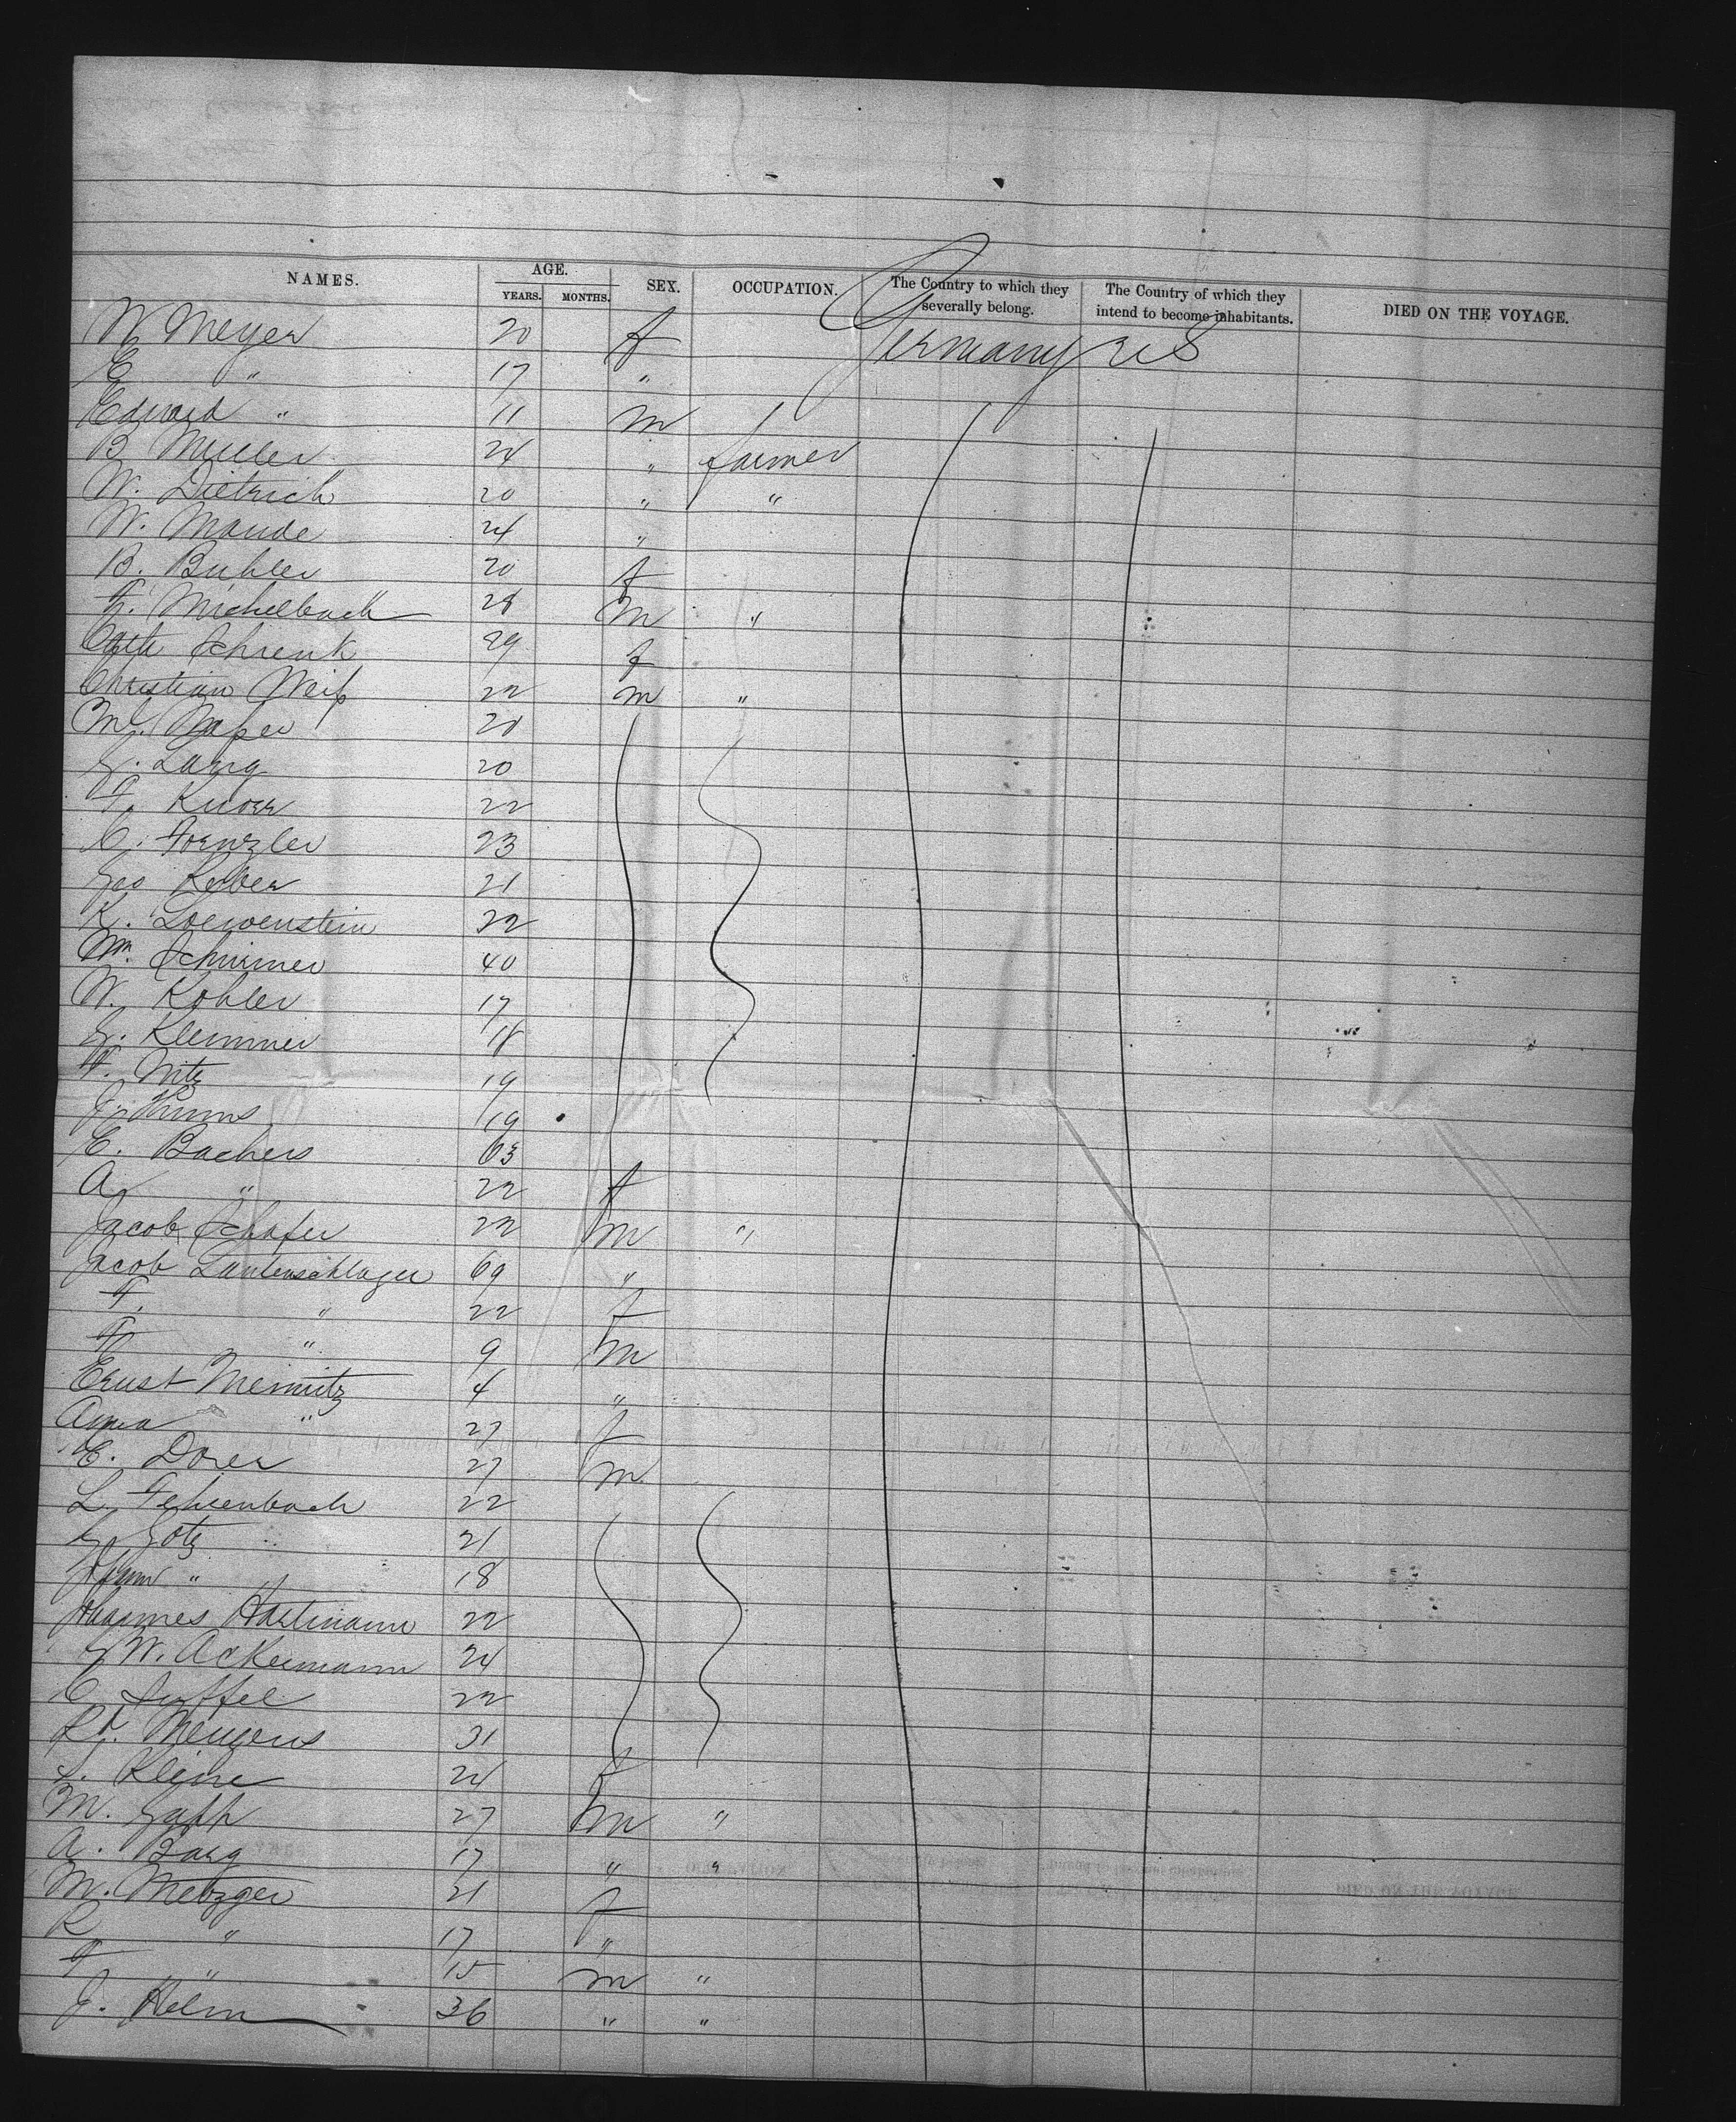 NAMES. AGE. YEARS. MONTHS. SEX. OCCUPATION. The Country to which they severally belong. The Country of which they intend to become inhabitants. DIED ON THE VOYAGE.
W Meyer 20 f Germany US
E " 17 "
Edward " 11 m
B Muller 24 " farmer
W. Dietrich 20 " "
W. Maude 24 "
B. Buhler 20 f
F. Michelbach 28 m "
Cath Schrenk 29 f
Christian Weiß 22 m "
20
G. Lang 20
F. Knorr 22
C. 23
Geo Kerber 21
K. Loewenstein 22
Wm. Schirmer 40
W. Kohler 17
G. Klemmer 18
F. Nitz 19
19
E. Bachers 63
A " 22 f
Jacob Schafer 22 m "
Jacob Lautenschlager 69 "
F. " 22 f
F " 9 m
Ernst 4 "
Anna " 27 f
E. Dorer 27 m
L. Fehrenbach 22
G Gotz 21
" 18
Johannes Hartmann 22
G W. Ackermann 24
C 22
Mengens 31
L. Kleine 24 f
M. 27 m "
A. Barg 17 " "
M. Metzger 21 f
R " 17 "
F " 15 m "
J. Helm 36 " "